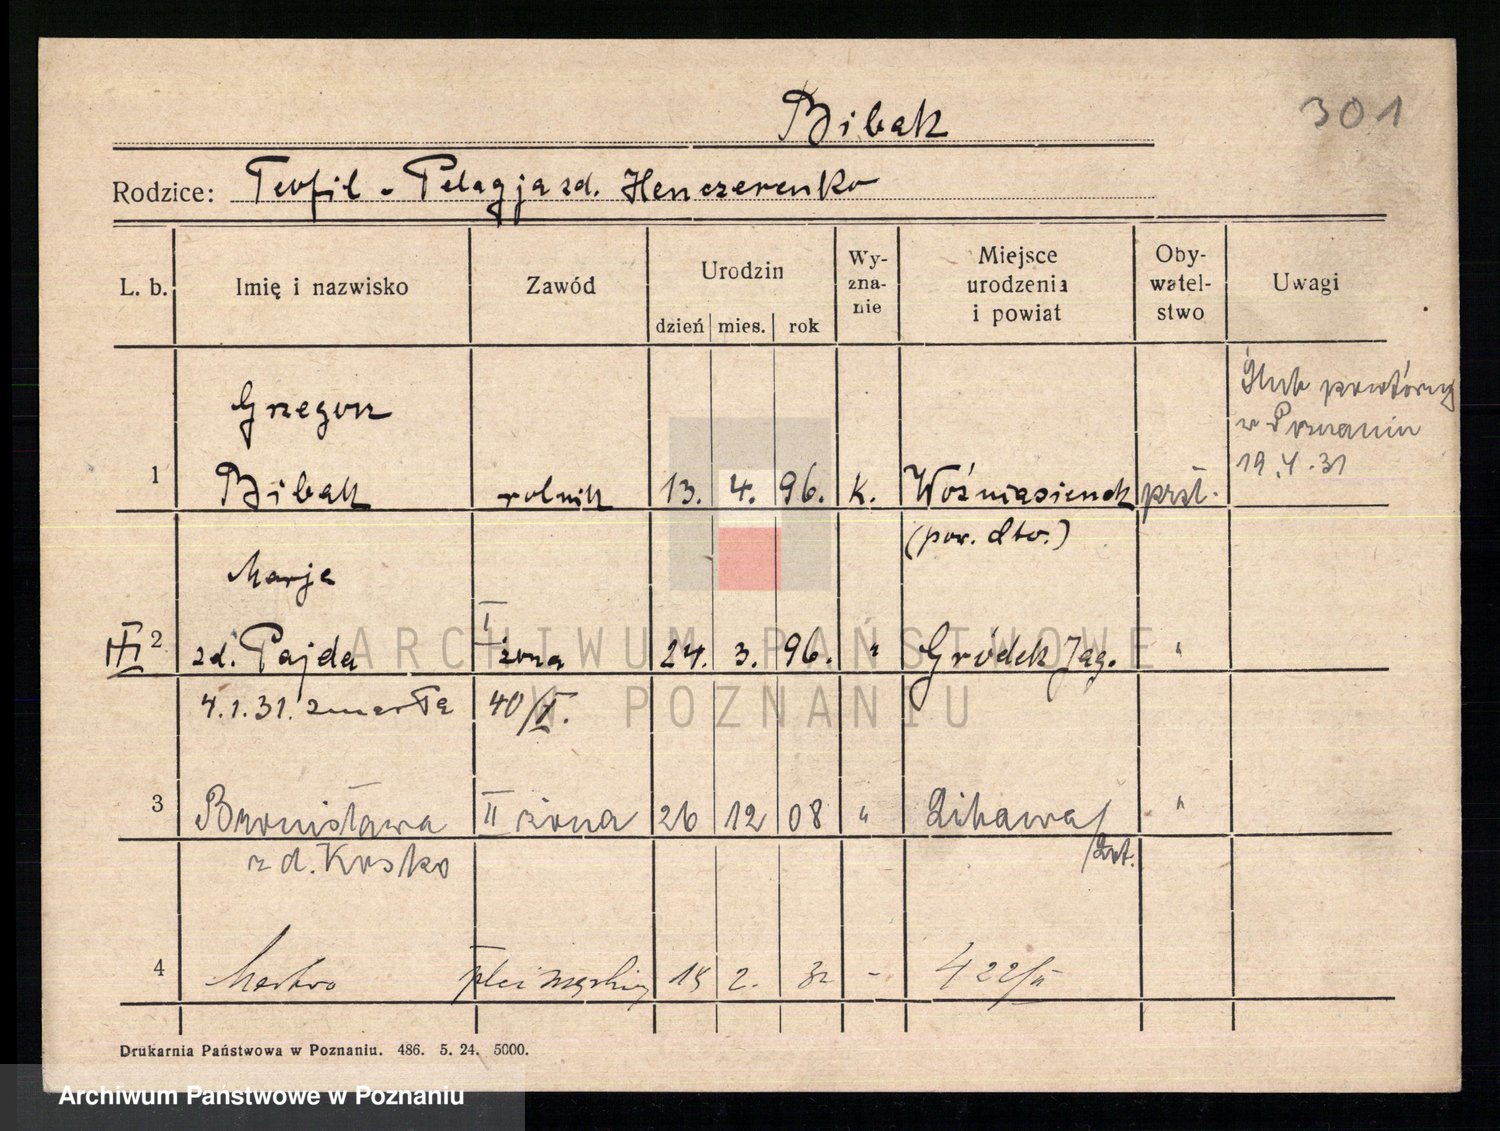 Bibak
301
Rodzice: Teofil - Pelagja zd. Henczerenko
L. b. Imię i nazwisko Zawód Urodzin dzień mies. rok Wy-zna-nie Miejsce urodzenia i powiat Oby-watel-stwo Uwagi
Ślub powtórny
w Poznaniu
19.4.31
Grzegorz
1 Bibak rolnik 13. 4. 96. k. Woźniasienck prst.
(pow. dto.)
Marja
I
III 2 zd. Pajda żona 24. 3. 96. " Gródek Jag. "
4.1.31. zmarła 40/I.
3 Bronisława II żona 26 12 08 " Litawa/ "
z d. Kosko
4 Martwo płci męskiej 15 2. 32 - 422/II
Drukarnia Państwowa w Poznaniu. 486. 5. 24. 5000.
ARCHIWUM PAŃSTWOWE
W POZNANIU
Archiwum Państwowe w Poznaniu